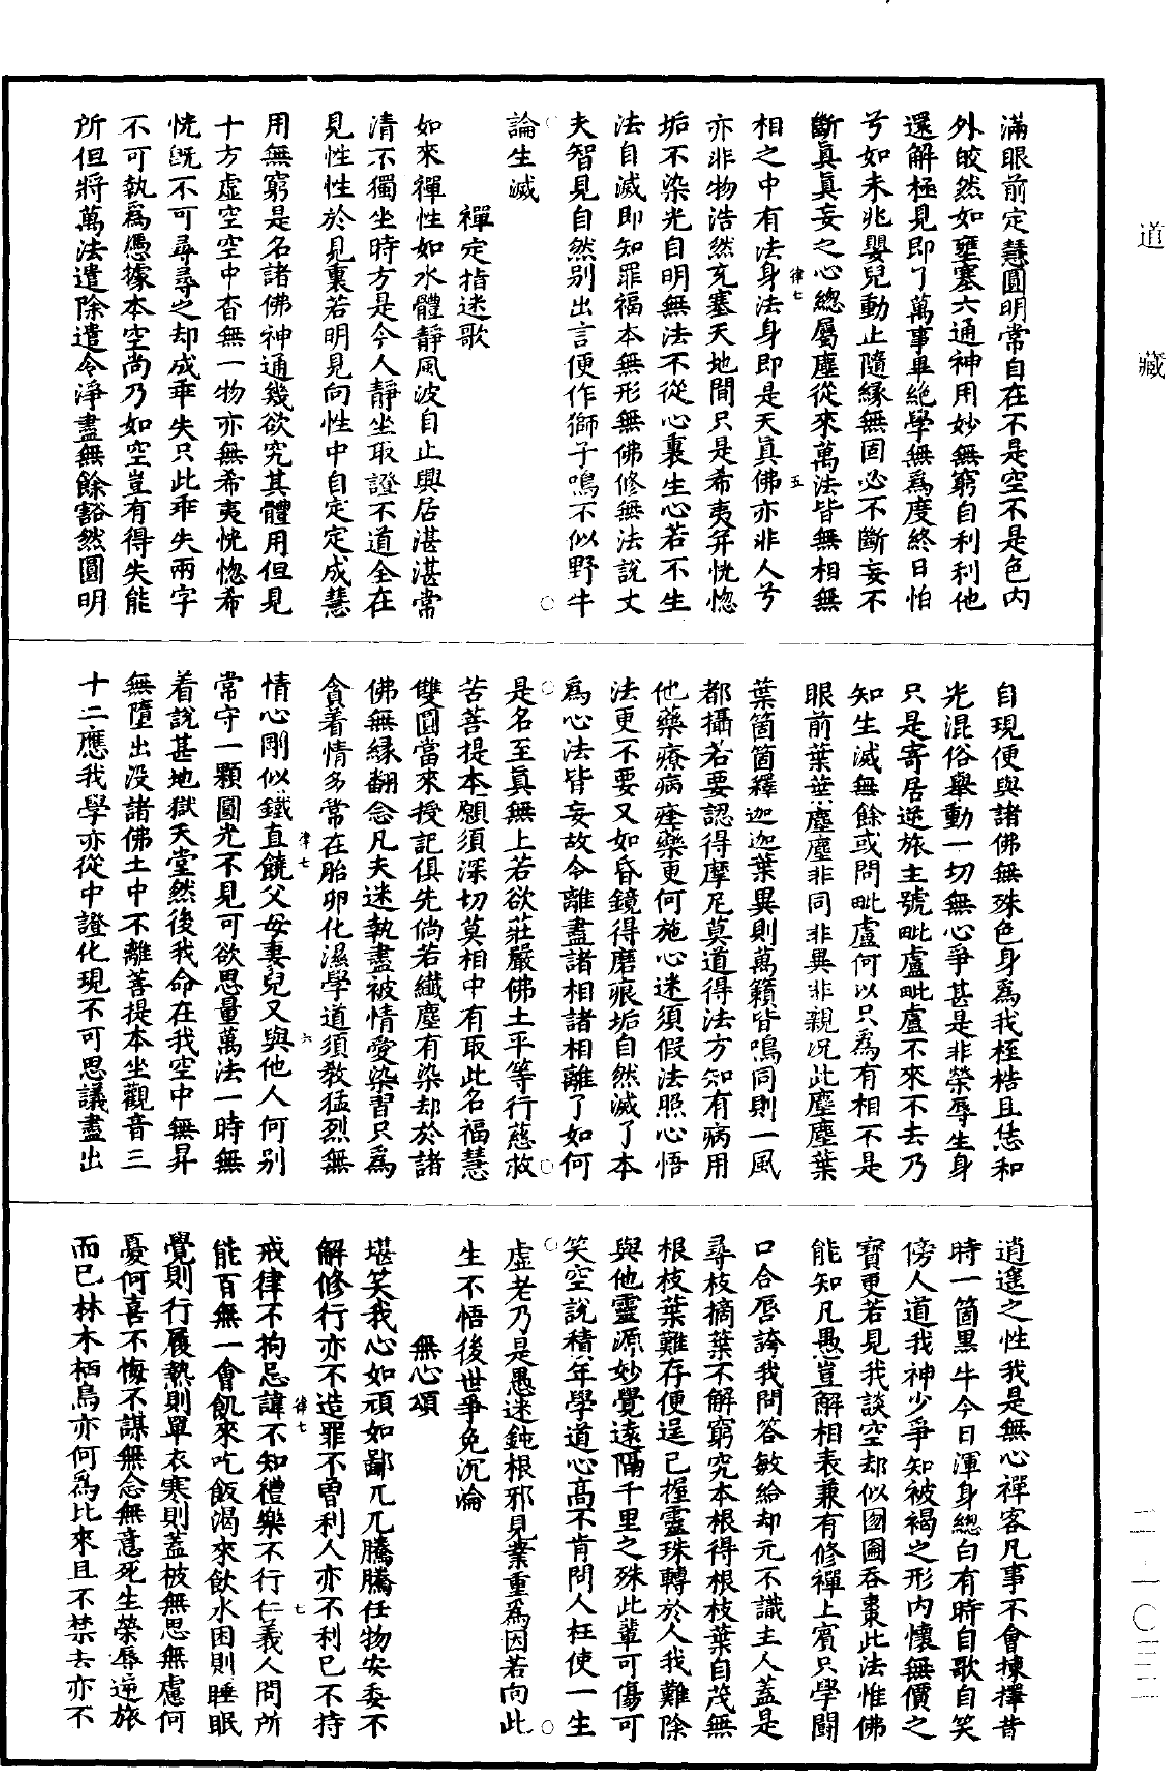 道藏
滿眼前定慧圓明常自在不是空不是色內
外皎然如壅塞六通神用妙無窮自利利他
還解極見即了萬事畢絕學無為度終日怕
兮如未兆嬰兒動止隨緣無固必不斷妄不
斷真真妄之心總屬塵從來萬法皆無相無
律七 五
相之中有法身法身即是天真佛亦非人兮
亦非物浩然充塞天地間只是希夷并恍惚
垢不染光自明無法不從心裏生心若不生
法自滅即知罪福本無形無佛修無法說丈
夫智見自然別出言便作獅子鳴不似野牛
論生滅
禪定指迷歌
如來禪性如水體靜風波自止興居湛湛常
清不獨坐時方是今人靜坐取證不道全在
見性性於見裏若明見向性中自定定成慧
用無窮是名諸佛神通幾欲究其體用但見
十方虛空空中杳無一物亦無希夷恍惚希
恍既不可尋尋之却成乖失只此乖失兩字
不可執為憑據本空尚乃如空豈有得失能
所但將萬法遣除遣令淨盡無餘豁然圓明
自現便與諸佛無殊色身為我桎梏且恁和
光混俗舉動一切無心爭甚是非榮辱生身
只是寄居逆旅主號毗盧毗盧不來不去乃
知生滅無餘或問毗盧何以只為有相不是
眼前葉葉塵塵非同非異非親況此塵塵葉
葉箇箇釋迦迦葉異則萬籟皆鳴同則一風
都攝若要認得摩尼莫道得法方知有病用
他藥療病痊藥更何施心迷須假法照心悟
法更不要又如昏鏡得磨痕垢自然滅了本
為心法皆妄故令離盡諸相諸相離了如何
是名至真無上若欲莊嚴佛土平等行慈救
苦菩提本願須深切莫相中有取此名福慧
雙圓當來授記俱先倘若纖塵有染却於諸
佛無緣翻念凡夫迷執盡被情愛染習只為
貪着情多常在胎卵化濕學道須教猛烈無
律七 六
情心剛似鐵直饒父母妻兒又與他人何別
常守一顆圓光不見可欲思量萬法一時無
着說甚地獄天堂然後我命在我空中無昇
無墮出沒諸佛土中不離菩提本坐觀音三
十二應我學亦從中證化現不可思議盡出
逍遙之性我是無心禪客凡事不會揀擇昔
時一箇黑牛今日渾身總白有時自歌自笑
傍人道我神少爭知被褐之形內懷無價之
寶更若見我談空却似囫圇吞棗此法惟佛
能知凡愚豈解相表兼有修禪上賓只學鬬
口合唇誇我問答敏給却元不識主人蓋是
尋枝摘葉不解窮究本根得根枝葉自茂無
根枝葉難存便逞已握靈珠轉於人我難除
與他靈源妙覺遠隔千里之殊此輩可傷可
笑空說積年學道心高不肯問人枉使一生
虛老乃是愚迷鈍根邪見業重為因若向此
生不悟後世爭免沉淪
無心頌
堪笑我心如頑如鄙兀兀騰騰任物安委不
解修行亦不造罪不曾利人亦不利己不持
律七 七
戒律不拘忌諱不知禮樂不行仁義人問所
能百無一會飢來吃飯渴來飲水困則睡眠
覺則行履熱則單衣寒則蓋被無思無慮何
憂何喜不悔不謀無念無意死生榮辱逆旅
而已林木栖鳥亦何為比來且不禁去亦不